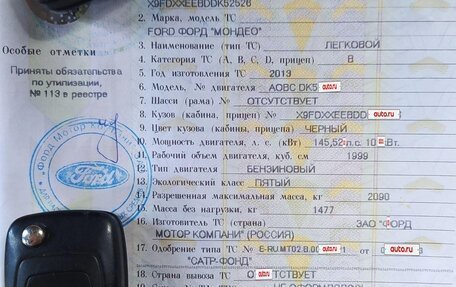 X9FDXXEEBDDK52526
2. Марка, модель ТС
FORD ФОРД "МОНДЕО"
Особые отметки
3. Наименование (тип ТС) ЛЕГКОВОЙ
4. Категория ТС (A, B, C, D, прицеп) B
Приняты обязательства
по утилизации,
№ 113 в реестре
5. Год изготовления ТС 2013
6. Модель, № двигателя AOBC DK5 auto.ru
7. Шасси (рама) № ОТСУТСТВУЕТ
8. Кузов (кабина, прицеп) № X9FDXXEEBD auto.ru
9. Цвет кузова (кабины, прицепа) ЧЕРНЫЙ
10. Мощность двигателя, л. с. (кВт) 145,52 л.с. 10 auto.ru Вт.
11. Рабочий объем двигателя, куб. см 1999
12. Тип двигателя БЕНЗИНОВЫЙ
13. Экологический класс ПЯТЫЙ
14. Разрешенная максимальная масса, кг 2090
15. Масса без нагрузки, кг 1477
16. Изготовитель ТС (страна) ЗАО "ФОРД
МОТОР КОМПАНИ" (РОССИЯ)
17. Одобрение типа ТС № E-RU.MT02.B.00 auto.ru 1 от auto.ru 3
"САТР-ФОНД"
18. Страна вывоза ТС О auto.ru ТСТВУЕТ
"Форд Мотор
Ford